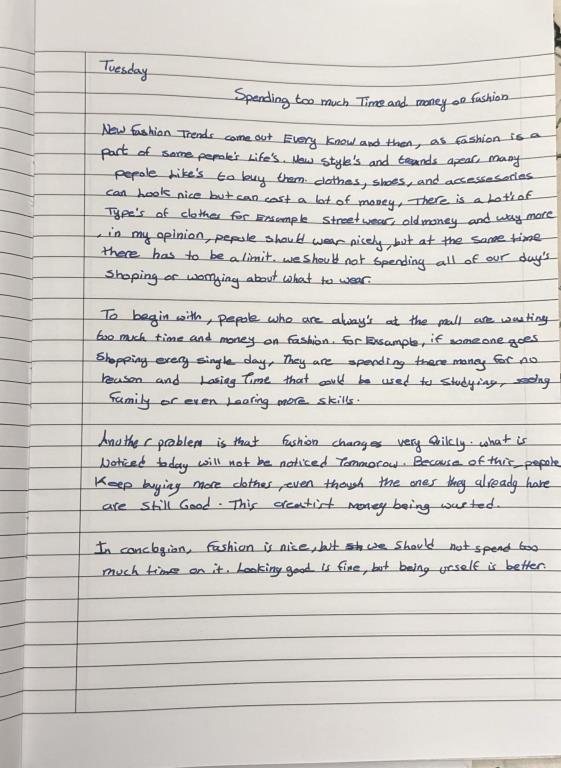 Tuesday
Spending too much Time and money on fashion
New fashion Trends come out Every know and then, as fashion is a
part of some pepole's Life's. New style's and teands apear, many
pepole Like's to buy them. clothes, shoes, and accessesories
can Look nice but can cost a lot of money, There is a Lot's of
Type's of clothes for Ensomple Street wear, old money and way more
, in my opinion, pepole should wear nicely, but at the same time
there has to be a limit. we should not spending all of our day's
shoping or worrying about what to wear.
To begin with, pepole who are alway's at the mall are wasting
too much time and money on fashion. for Ensample, if someone goes
Shopping every single day, They are spending there money for no
reason and Losing Time that could be used to studying, seeing
Family or even Learing more skills.
Another problem is that fashion changes very Quilcly. what is
Noticed today will not be noticed Tommorow. Because of this, pepole
Keep buying more clothes, even though the ones they already have
are still Good. This creatist money being wasted.
In conclogion, fashion is nice, but we should not spend too
much time on it. Looking good is fine, but being urself is better.